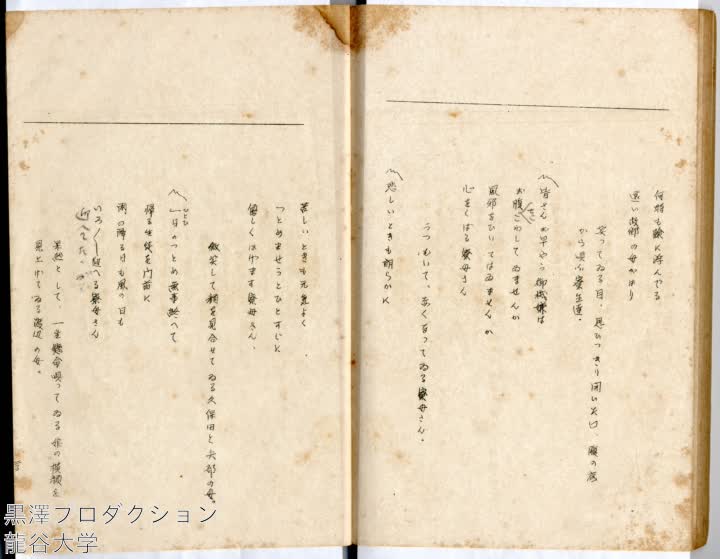 何時も瞼に浮んでる
遠い故郷の母かはり
笑ってゐる目、思ひっきり開いた口、腹の底
から唄ふ寮生達。
〽皆さんお早やう御機嫌は
お腹こわしてゐませんか
風邪をひいてはゐませんか
心をくばる寮母さん
うつむいて、あく迄ってゐる寮母さん。
〽悲しいときも朗らかに
苦しいときも元気よく
つとめませうとひとすじに
優しくはげます寮母さん、
微笑して顔を見合せてゐる久保田と大部の母。
〽一日のつとめ無事終へて
ひとひ
帰る生徒を門前に
雨の降る日も風の日も
いろ〱迎へる寮母さん
迎へて
毅然として、一生懸命唄ってゐる娘の横顔を
見上げてゐる渡辺の母。
黒澤プロダクション
龍谷大学